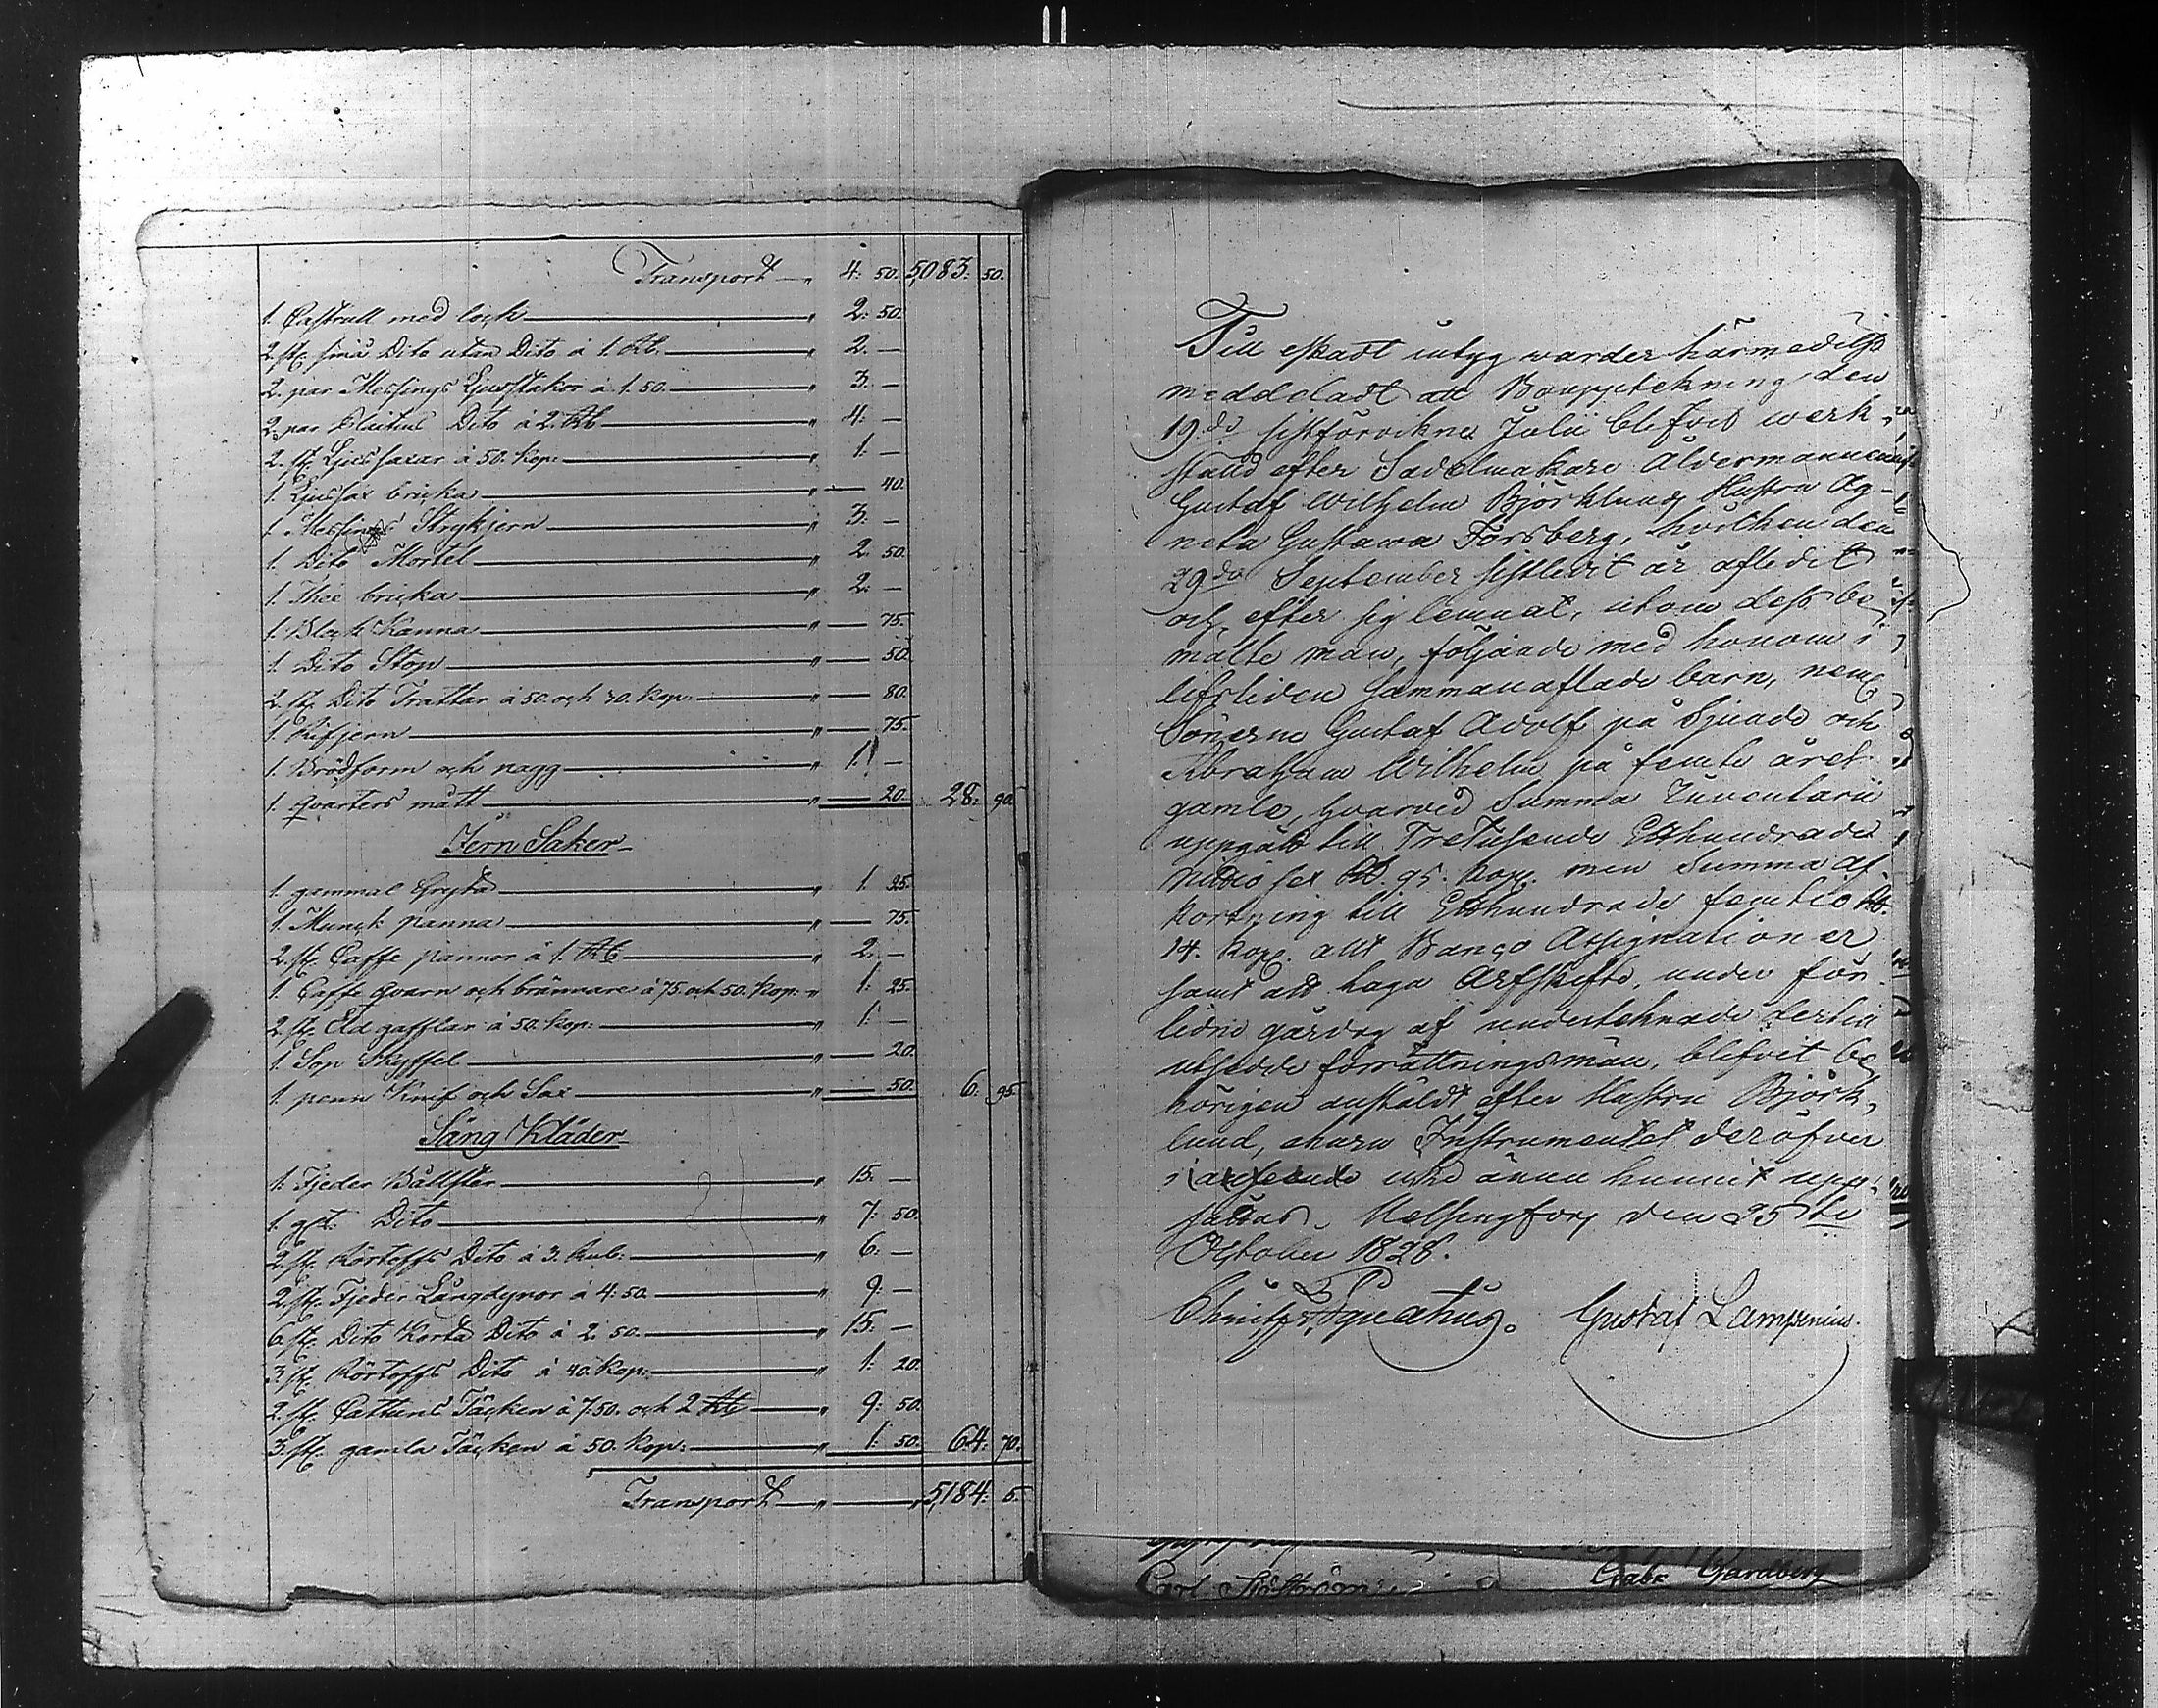 Transport — " 4: 50. 5,083: 50.
1. Castrull med lock — " 2: 50.
2. st. små Dito utan Dito á 1. Rb. — " 2. —
2. par Messings Ljusstakor á 1. 50. — " 3. —
2. par Dito á 2. Rb — " 4: —
2. st. Ljus saxar á 50. kop: — " 1: —
1. Ljussax bricka — " — 40.
1. Messings Strykjern — " 3: —
1. Dito Mortel — " 2. 50.
1. Thee bricka — " 2: —
1. Bleck Kanna — " — 75.
1. Dito Stop — " — 50.
2. st. Dito Trattar á 50. och 30. kop: — " — 80.
1. Rifjern — " — 75.
1. Brödform och nagg — " 1. —
1. qvarters mått — " — 20. 28: 90.
Jern Saker
1. gammal Gryta — " 1. 25.
1. Munck panna — " — 75.
2. st. Caffe pannor á 1. Rb — " 2. —
1. Caffe qvarn och brännare á 75. och 50. Kop: " 1: 25.
2. st. Eld gafflar á 50. kop: — " 1: —
1. Sop Skyffel — " — 20.
1. penn Knif och Sax — " — 50. 6: 95.
Säng Kläder
1. Fjeder Bållster — " 15. —
1. gl. Dito — " 7: 50.
2. st. Rörtoffs Dito á 3. Rub: — " 6: —
2. st. Fjeder Långdynor á 4: 50. — " 9: —
6. st. Dito Korta Dito á 2. 50. — " 15: —
3. st. Rörtoffs Dito á 40. Kop: — " 1: 20.
2. st. Cattuns Täcken á 7:50. och 2 Rb — " 9: 50.
3. st. gamla Täcken á 50. Kop: — " 1: 50. 64: 70.
Transport — " — 5,184: 5.
Till äskadt intyg warder härmedelst
meddeladt att Bouppteckning den
19:de sistförvikne Julii blifvit werk-
stäld efter Sadelmakare Åldermannen
Gustaf Wilhelm Björklunds Hustru Ag-
neta Gustawa Forsberg, hvilken den
29de September sistledit år aflidit
och efter sig lemnat, utom dess be-
mälte man, följande med honom i
lifstiden sammanaflade barn, neml
Sönerne Gustaf Adolf på Sjunde och
Abraham Wilhelm på femte året
gamla, hvarvid Summa Inventarii
uppgått till Tretusende Etthundrade
Nittio sex Rb. 95. Kop. men Summa af-
kortning till Etthundrade femtio Rb.
14. Kop. allt Banco Assignationer
samt att laga Arfskifte, under för-
lidne gårdag af undertecknade dertill
utsedde förrättningsmän, blifvit be-
hörigen anstäldt efter Hustru Björk-
lund, ehuru Instrumentet deröfver
icke ännu hunnit upp-
sättas. Helsingfors den 25te
October 1828.
Gustaf Lampenius.
Carl Sjöström Gabr Gardberg